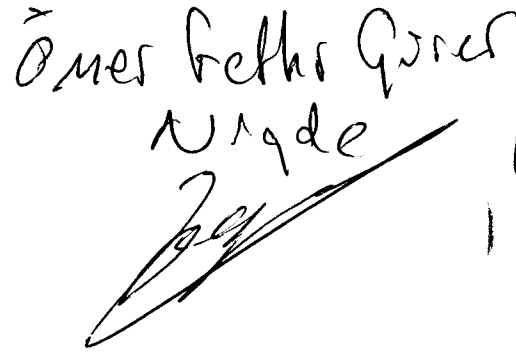 Ömer Fethi Gürer
Niğde